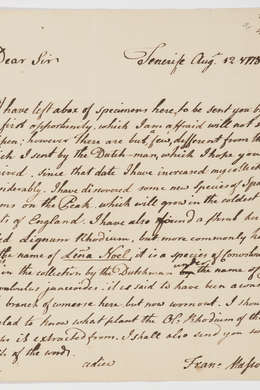 Dear Sir
Tenerife Aug. 12 1778
have left a box of specimens here, to be sent you b
first opportunity, which I am affraid will not
pen; however there are but few, different from th
ich I sent by the Dutch-man, which I hope you
eived. Since that date I have increased my collect
iderably. I have discovered some new Species of
ms on the Peak, which will grow in the coldest
ts of England. I have also found a shrub
ed Lignum Rhodium, but more commonly
the name of Leña Noel, it is a species of Convolvu
in the collection by the Dutchman under the name of C
volvulus junceoides. it is said to have been a
branch of comerse here but now wornout. I shou
lad to know what plant the Ol. Rhodium of th
ps is extracted from. I shall also send you
of the wood.
adieu
Fran. Masso